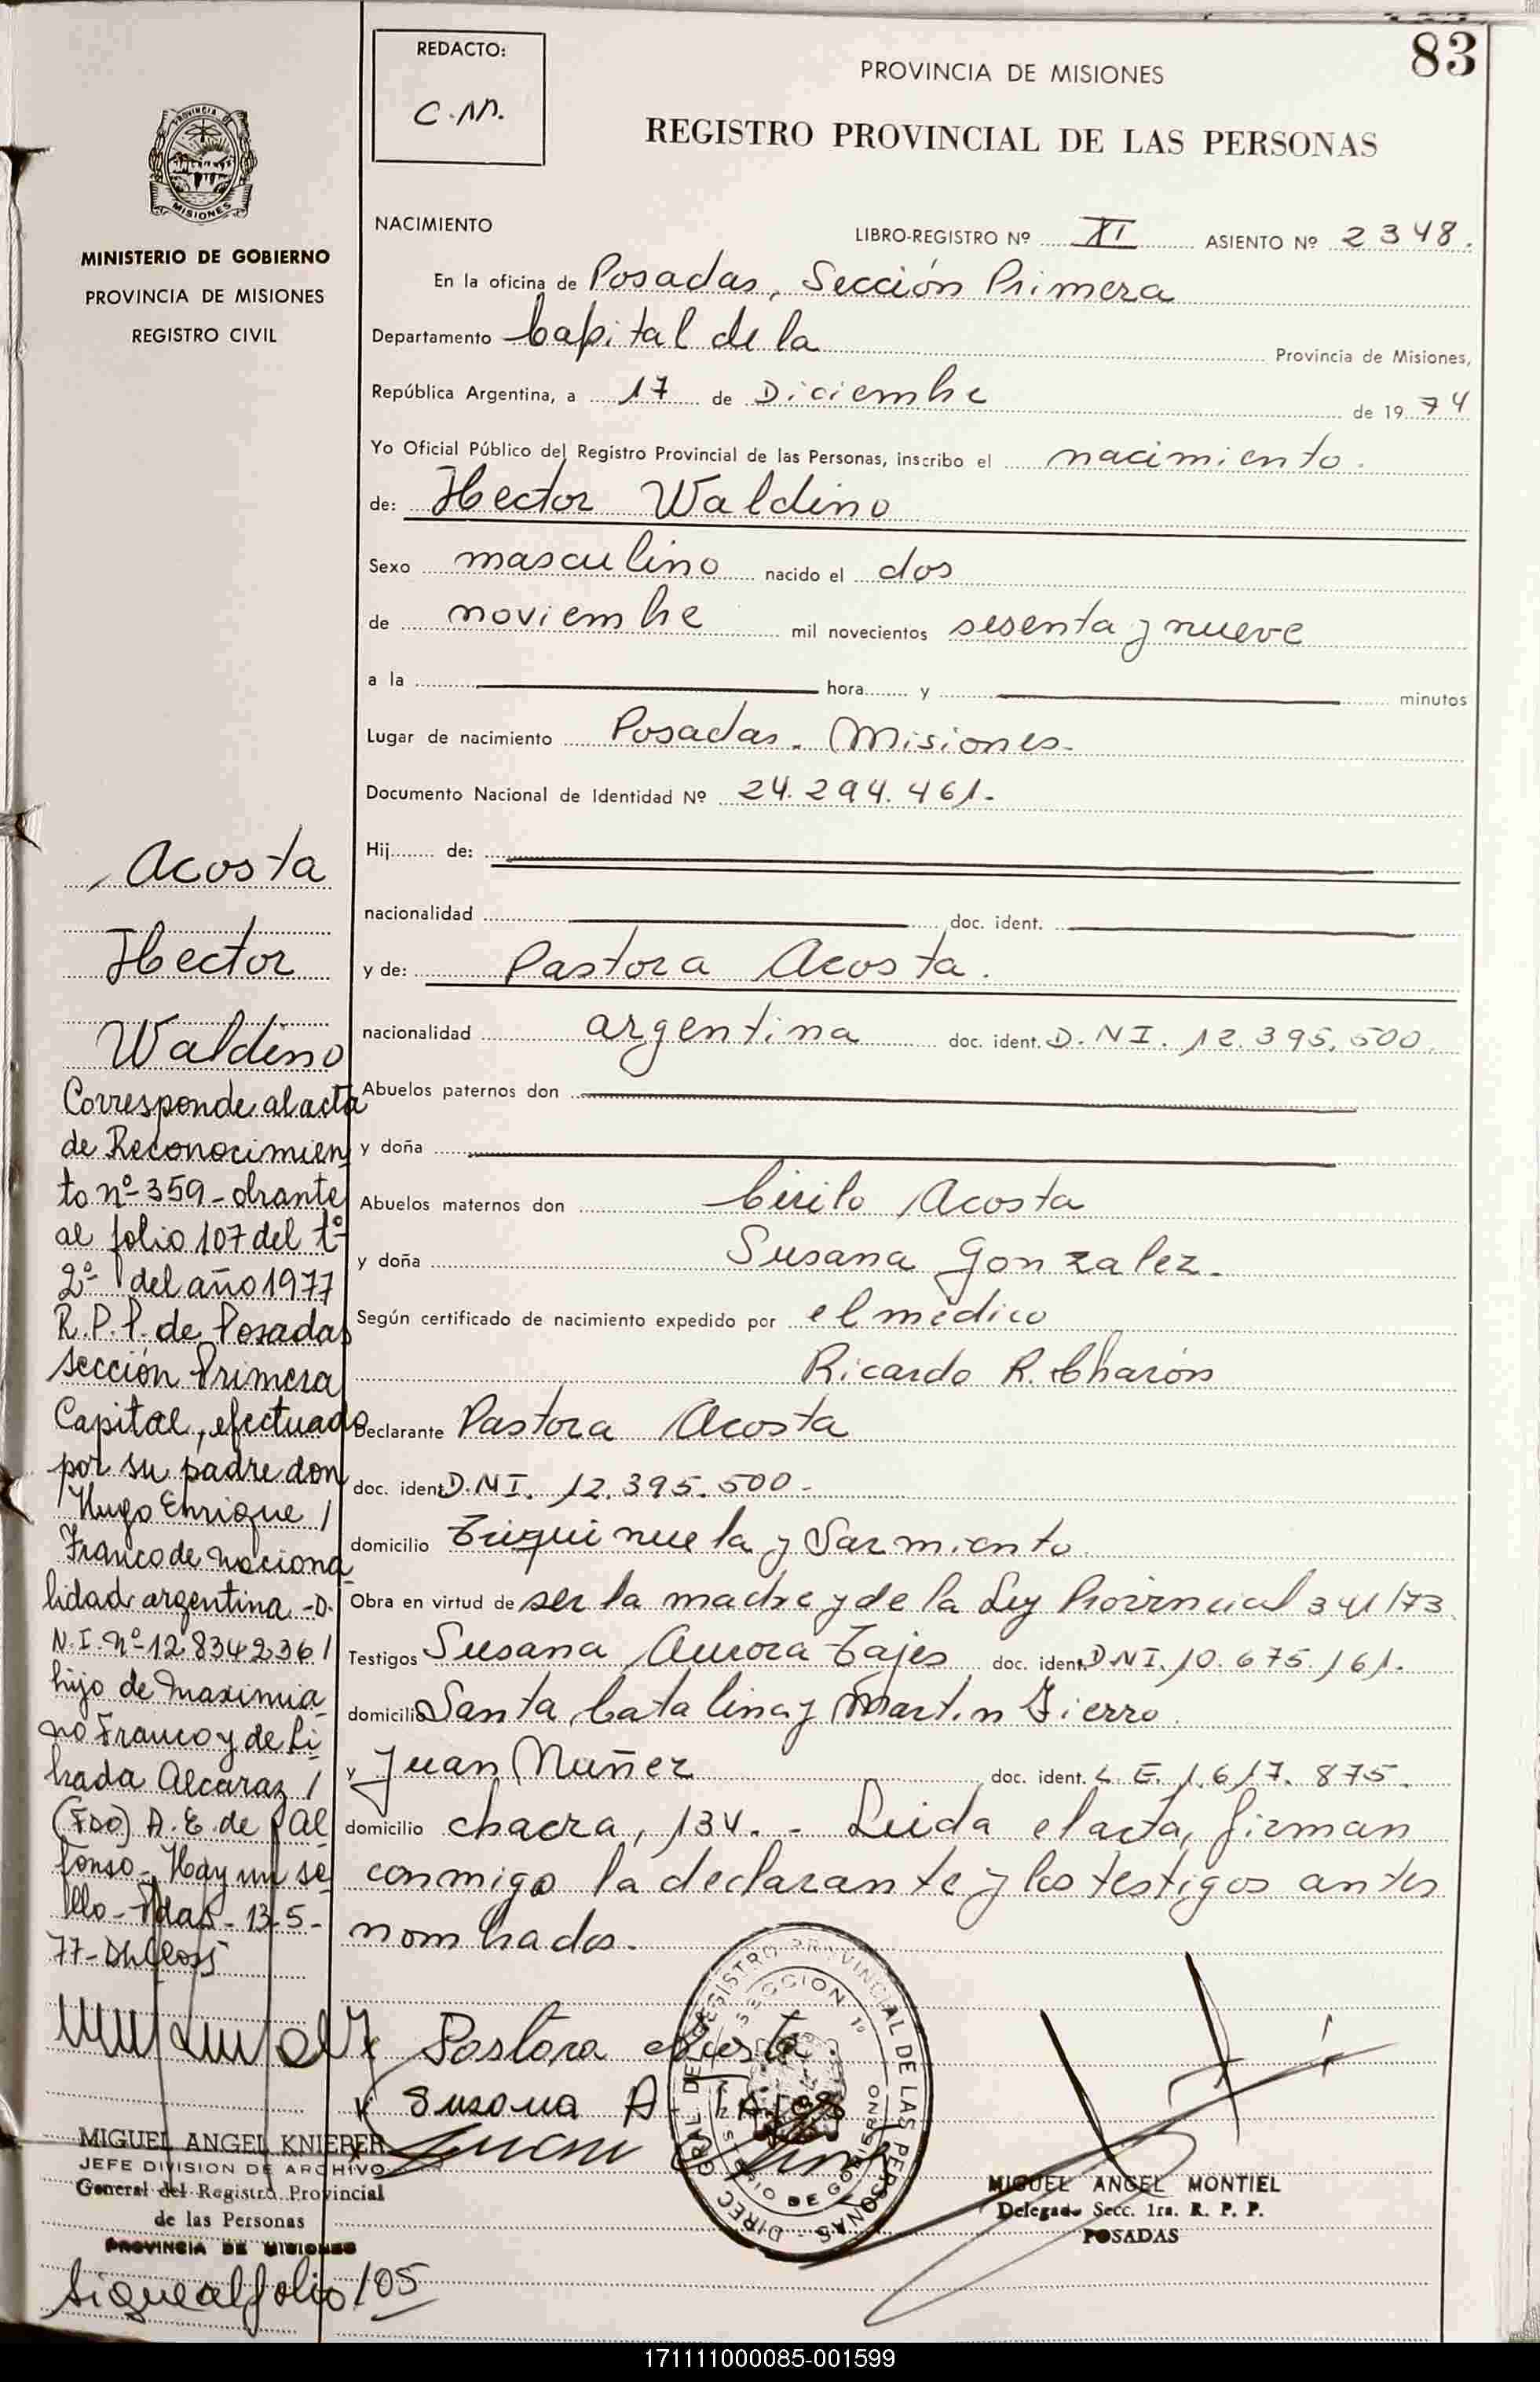 REDACTO:
C.M.
PROVINCIA DE MISIONES
83
REGISTRO PROVINCIAL DE LAS PERSONAS
MISIONES
MINISTERIO DE GOBIERNO
PROVINCIA DE MISIONES
REGISTRO CIVIL
NACIMIENTO
LIBRO-REGISTRO Nº XI ASIENTO Nº 2348.
En la oficina de Posadas, Sección Primera
Departamento Capital de la Provincia de Misiones,
República Argentina, a 17 de Diciembre de 1974
Yo Oficial Público del Registro Provincial de las Personas, inscribo el nacimiento.
de: Hector Waldino
Sexo masculino nacido el dos
de noviembre mil novecientos sesenta y nueve
a la hora y minutos
Lugar de nacimiento Posadas. Misiones-
Documento Nacional de Identidad Nº 24.294.461.-
Hij de:
nacionalidad doc. ident.
y de: Pastora Acosta.
nacionalidad argentina doc. ident. D.NI. 12.395.500.
Abuelos paternos don
y doña
Abuelos maternos don Cirilo Acosta
y doña Susana Gonzalez.
Según certificado de nacimiento expedido por el médico
Ricardo R. Charón
Declarante Pastora Acosta
doc. ident D.NI. 12.395.500-
domicilio y Sarmiento.
Obra en virtud de ser la madre y de la Ley Provincial 341/73.
Testigos Susana Aurora Tajes doc. ident. DNI. 10.675.161.
domicilio Santa Catalina y Martin Fierro.
y Juan Nuñez doc. ident. L.E. 1.617.875.
domicilio chacra, 134. - Leida el acta, firman
conmigo la declarante y los testigos antes
nombrados.
Acosta
Hector
Waldino
Corresponde al acta
de Reconocimien
to nº 359- obrante
al folio 107 del tº
2º del año 1977
R.P.P. de Posadas
sección Primera
Capital, efectuado
por su padre don
Hugo Enrique /
Franco de naciona
lidad argentina -D.
N.I. nº 12834236 /
hijo de Maximia
no Franco y de Li
brada Alcaraz /
(Fdo) A. E. de Al
fonso- Hay un se
llo- Pdas- 13-5-
77-
Pastora Acosta
Susana A Tajes
DIREC. GRAL. DEL REGISTRO PROVINCIAL DE LAS PERSONAS
SECCION 1º
MINISTERIO DE GOBIERNO
MIGUEL ANGEL KNIERER
JEFE DIVISION DE ARCHIVO
General del Registro Provincial
de las Personas
PROVINCIA DE MISIONES
Sigue al folio 105
MIGUEL ANGEL MONTIEL
Delegado Secc. 1ra. R. P. P.
POSADAS
171111000085-001599